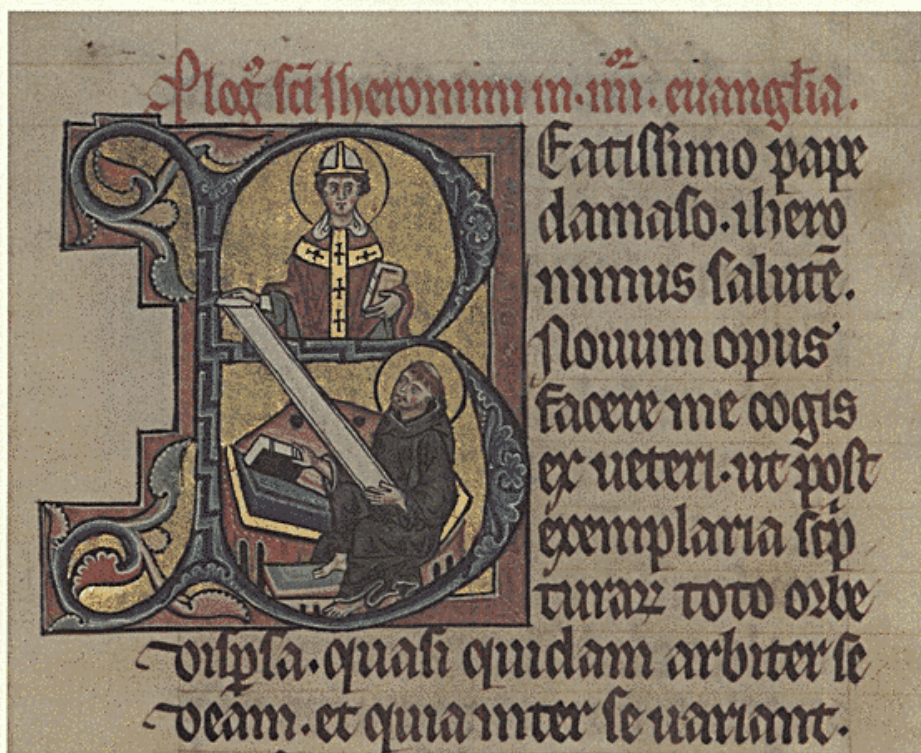 Plog̃ sc̄i Iheronimi in .iiii.or euangl̄ia.
Beatissimo pape
damaso. ihero
nimus salutē.
Nouum opus
facere me cogis
ex ueteri. ut post
exemplaria sc̄ip
turaꝝ toto orbe
disꝑsa. quasi quidam arbiter se
deam. et quia inter se uariant.